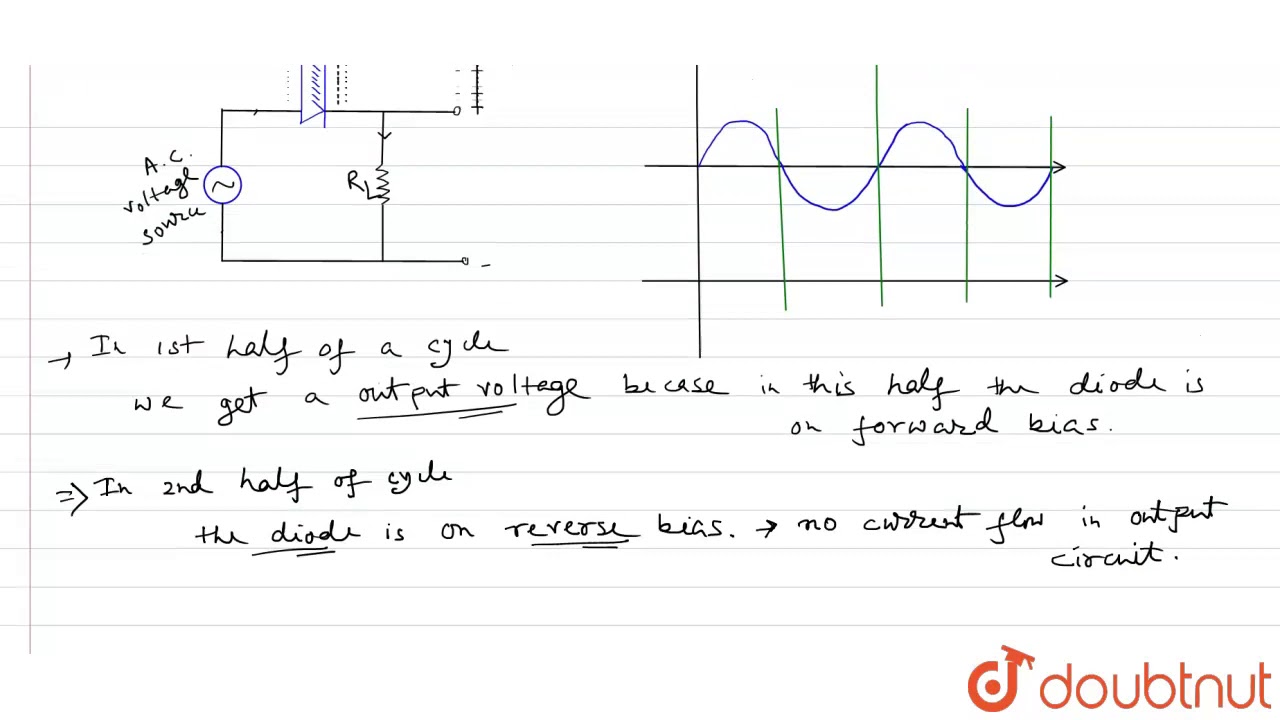 A.C.
voltage
source
RL
-
→ In 1st half of a cycle
we get a output voltage becase in this half the diode is
on forward bias.
⇒ In 2nd half of cycle
the diode is on reverse bias. → no current flow in output
circuit.
doubtnut